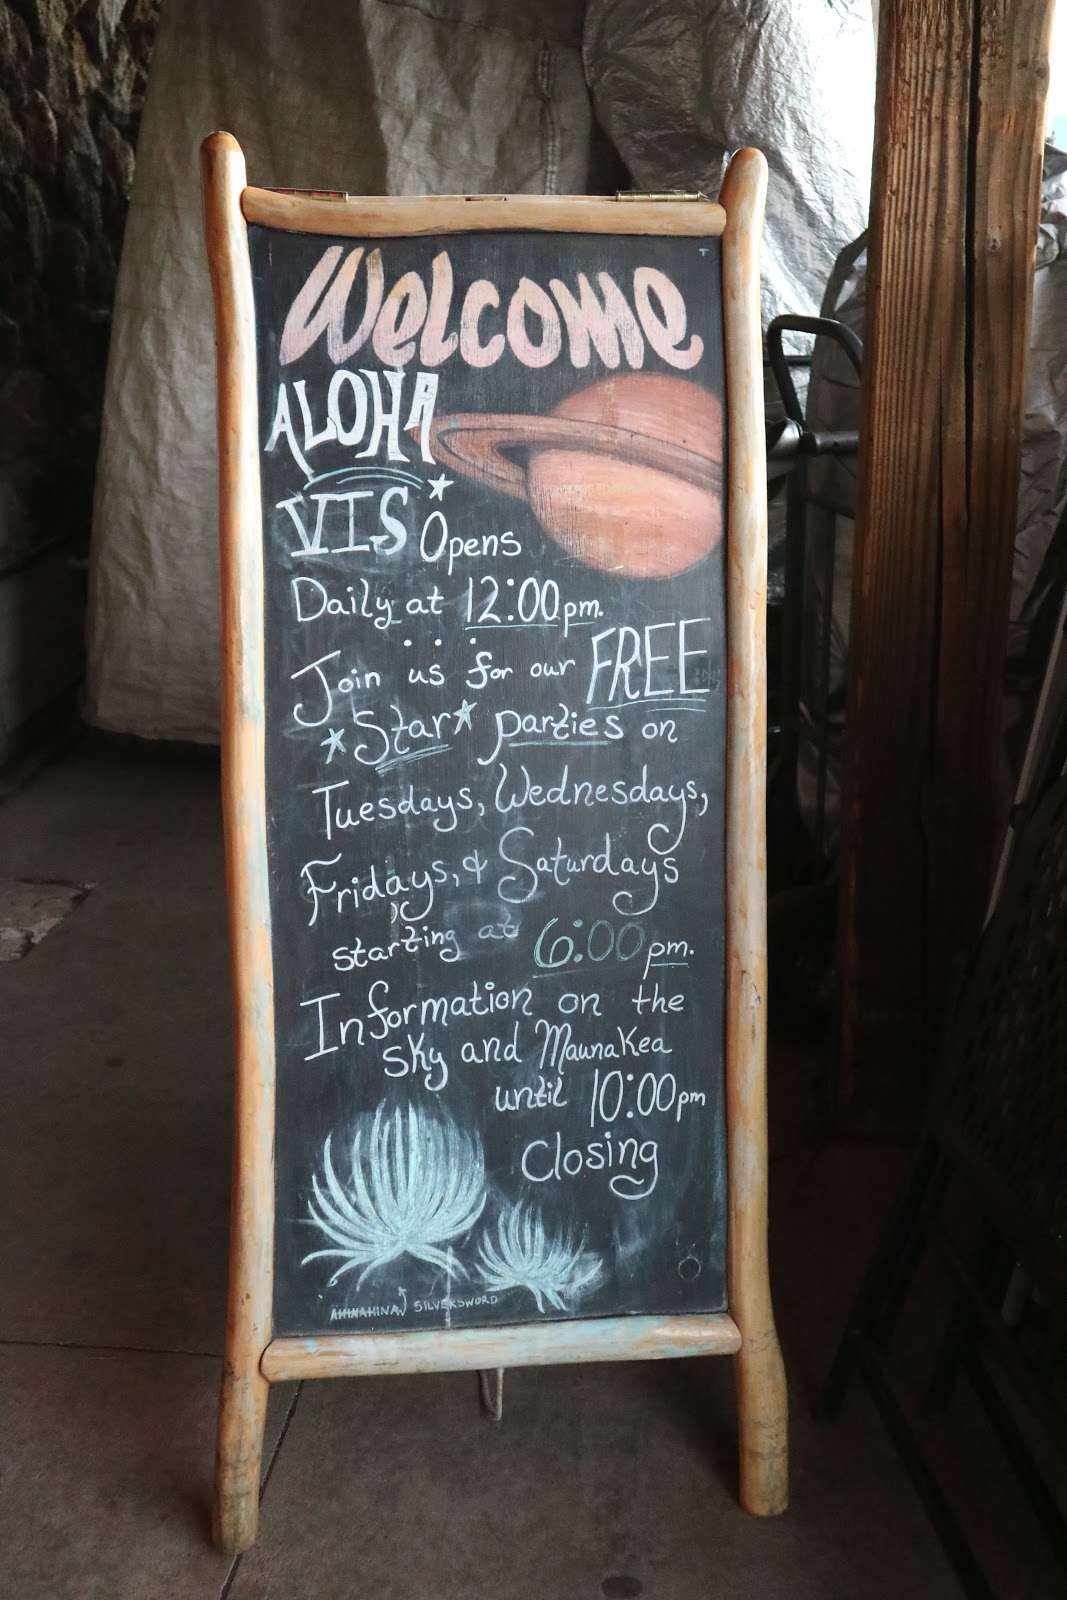 Welcome
ALOHA
VIS Opens
Daily at 12:00pm.
Join us for our FREE
Star parties on
Tuesdays, Wednesdays,
Fridays, & Saturdays
starting at 6:00 pm.
Information on the
sky and MaunaKea
until 10:00pm
Closing
AHINAHINA SILVERSWORD